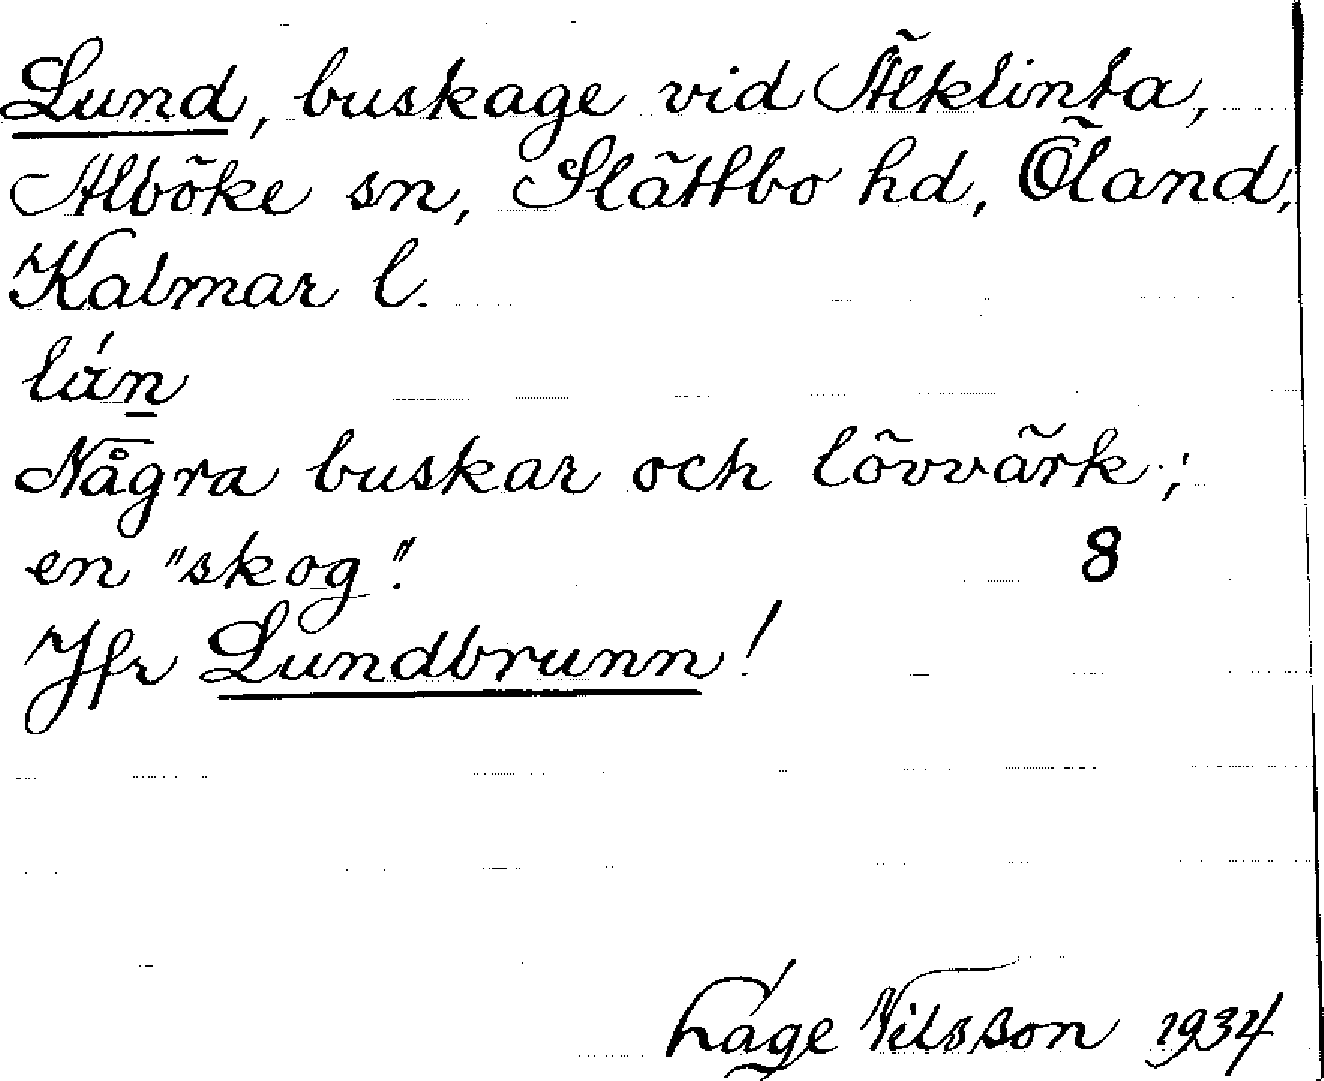 Lund, buskage vid Äleklinta,
Alböke sn, Slättbo hd, Öland,
Kalmar l.
lán
Några buskar och lövvärk;
en "skog".
8
Jfr Lundbrunn!
Lage Nilsson 1934